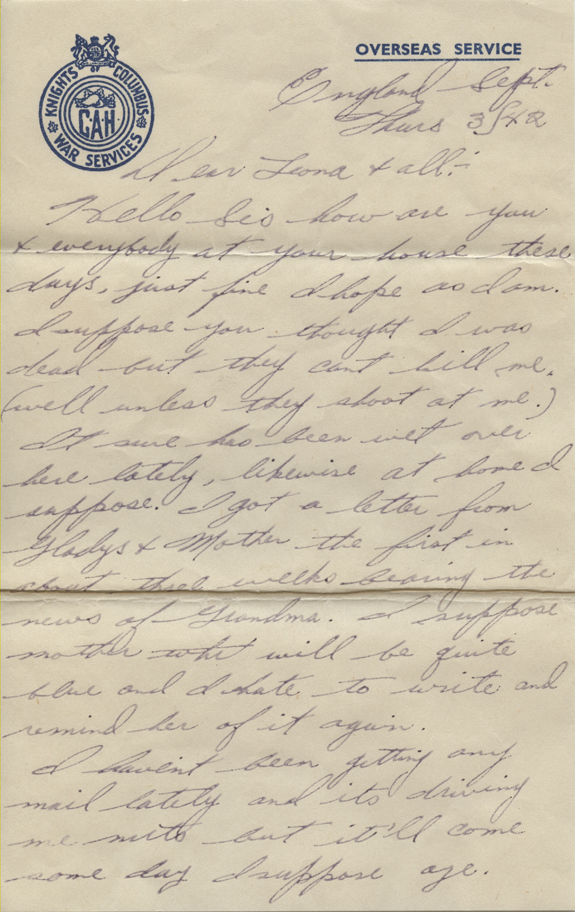 OVERSEAS SERVICE
KNIGHTS OF COLUMBUS
CAH
WAR SERVICES
England Sept.
Thurs 3/42
Dear Leona & all:-
Hello Sis how are you
& everybody at your house these
days, just fine I hope as I am.
I suppose you thought I was
dead but they cant kill me.
(well unless they shoot at me.)
It sure has been wet over
here lately, likewise at home I
suppose. I got a letter from
Gladys & Mother the first in
about three weeks bearing the
news of Grandma. I suppose
mother will be quite
blue and I hate to write and
remind her of it again.
I havent been getting any
mail lately and its driving
me nuts but it'll come
some day I suppose aye.